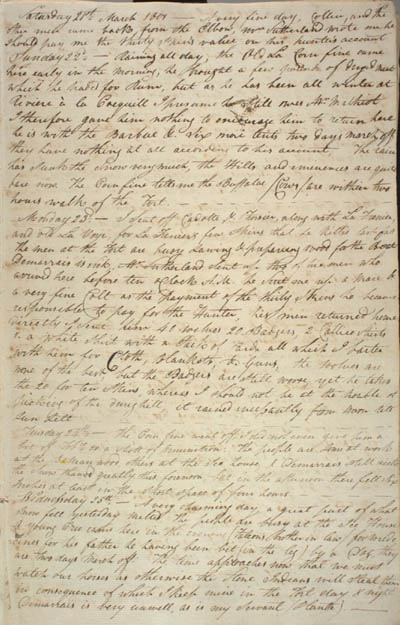 Saturday 21st March 1801 — A very fine day, Collin, and the
men came back from the Elbow, Mr Sutherland wrote me he
should pay me the thirty Skins value on his hunters account
Sunday 22d — Raining all day, the Old La Corn fine came
here early in the morning, he brought a few of dryed meat
which he traded for Rum, but as he has been all winter at
Riviere a la Coquille I presume he still owes Mr
I therefore gave him nothing to encourage him to return here
he is with the Barbue & Six more tents two days march off
they have nothing at all according to his account. The rain
has sunk the snow very much, the Hills and eminences are quite
bare now. The Corn fine tells me the Buffaloe /Cows/ are within two
hours walk of the Fort.
Monday 23d — I sent off Cadotte & along with La
and Old La Voye, for La few Skins that he
the men at the Fort are busy sawing & preparing wood for the Boat
Demarrais is sick, Mr Sutherland sent up two of his men who
arrived here before ten o Clock A.M. he sent me up a mare &
a very fine Colt as the payment of the thirty Skins he became
responsible to pay for the Hunter, his men returned home
directly I sent him 40 wolves 20 Badgers 2 Callico Shirts
& a White Shirt with a Stick of all which I barter
with him for Cloth, Blankets, & Guns, the Wolves are
none of the best but the Badgers are still worse, yet he takes
the 20 for ten Skins, whereas I should not be at the trouble of
them of the dunghill. it rained incessantly from noon till
Sun Sett
Tuesday 24th — the Corn fine went off I did not even give him a
or a shot of Ammunition. The people are some at work
at the wood others at the Ice house, & Demarrais still
the Snow thawed greatly this forenoon but in the afternoon there fell six
Inches at least in the short space of four hours.
Wednesday 25th — A very charming day a great part of what
Snow fell yesterday melted The people are busy at the Ice House
a Young Cree came here in the evening brother in law/ for medi-
cines for his father he having been bit /in the leg/ by a Dog, they
are two days March off. The time approaches now that we must
watch our horses as otherwise the Stone Indians will steal them
in consequence of which I keep mine in the Fort day & night
Demarrais is very unwell, as is my Servant Plante! —